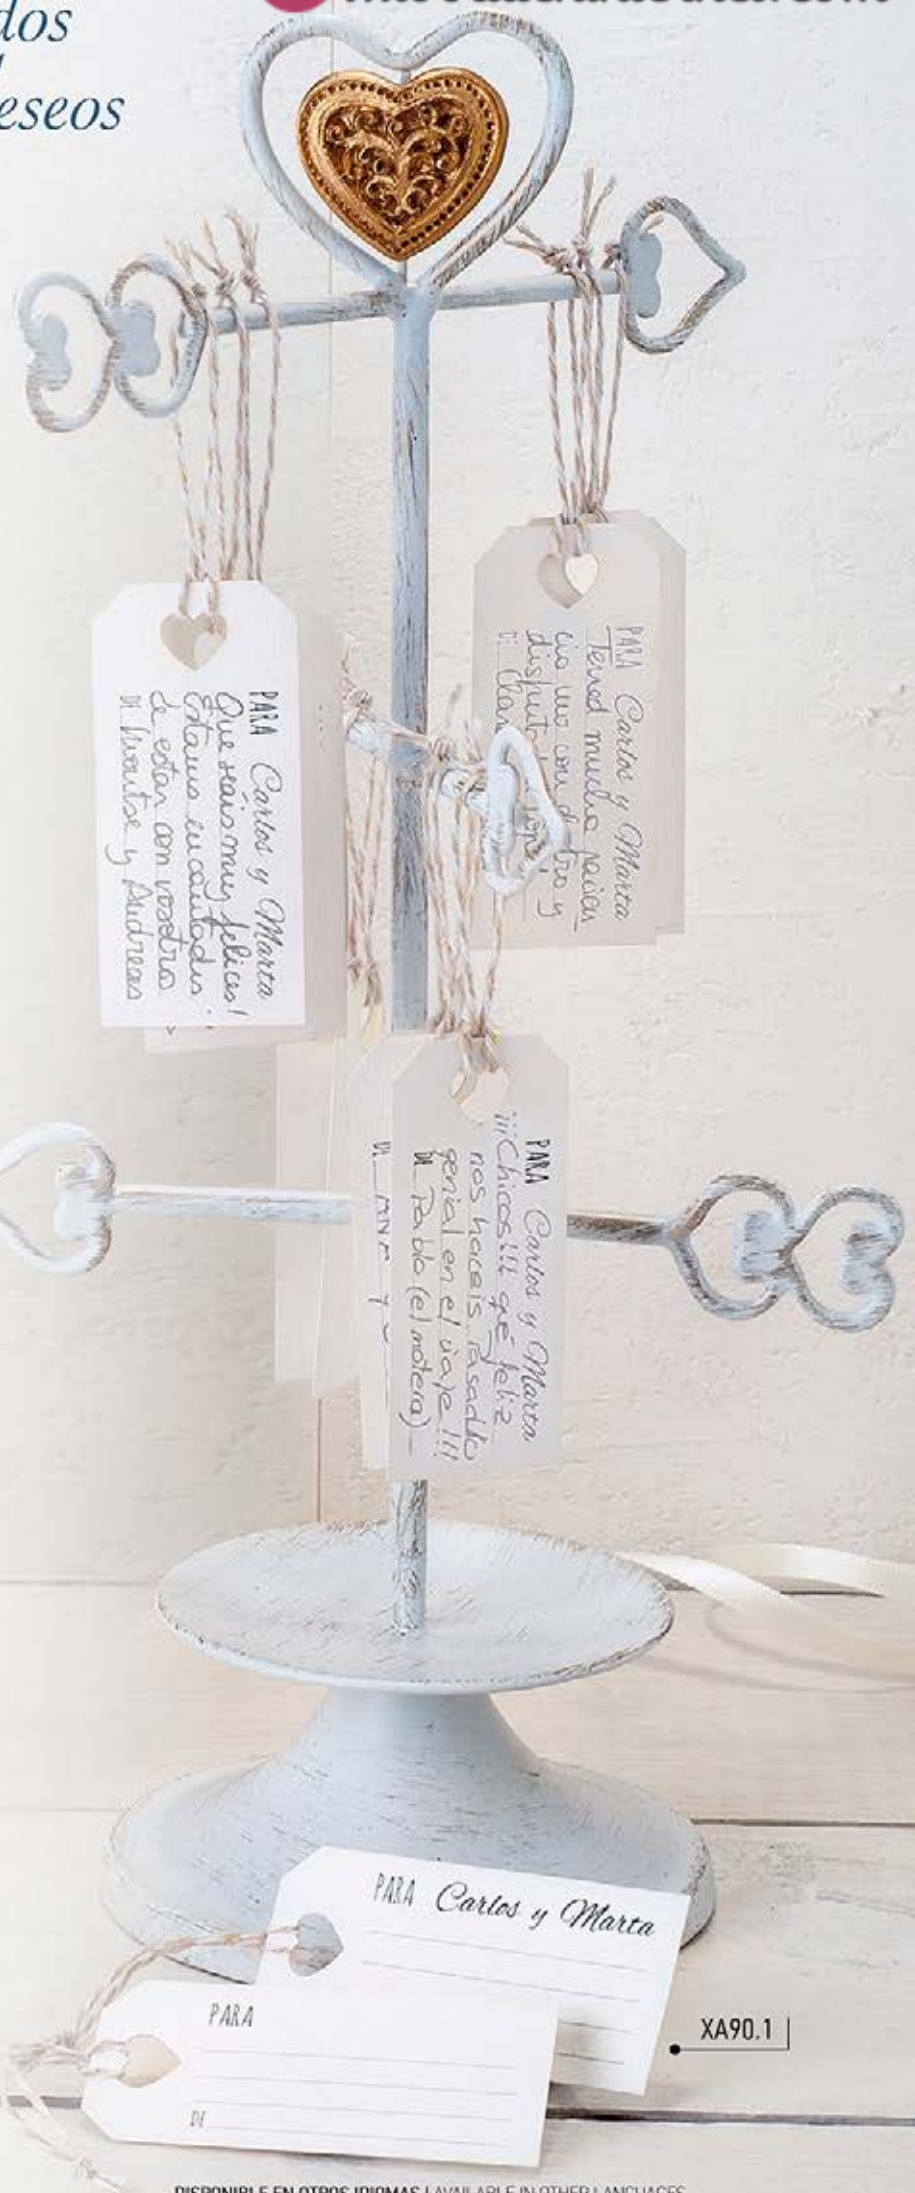 dos
eseos
PARA Carlos y Marta
Que seáis muy felices!
Estamos encantados
de estar con vosotros
DE Montse y Andreas
PARA Carlos y Marta
Tened mucha pacien
cia uno con otro y
disfrutad
DE
PARA Carlos y Marta
¡¡¡Chicos!!! que feliz
nos haceis. Pasadlo
genial en el viaje!!!
DE Pablo (el motero)
DE ANA Y
PARA Carlos y Marta
PARA
DE
XA90.1
DISPONIBLE EN OTROS IDIOMAS | AVAILABLE IN OTHER LANGUAGES